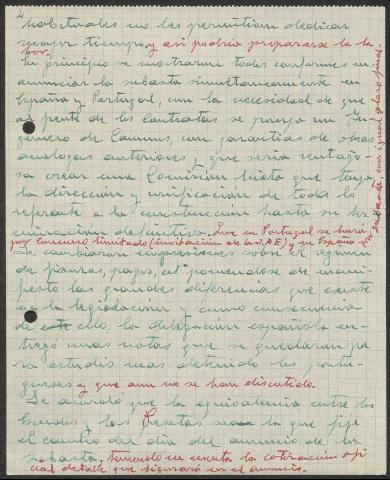 4
habituales no les permitían dedicar
mayor tiempo, y así podría prepararse la la-
bor.
En principio se mostraron todos conformes en
anunciar la subasta simultaneamente en
España y Portugal, con la necesidad de que
al frente de los contratos se ponga un In-
geniero de Caminos, con garantías de obras
analogas anteriores y que sería ventajo-
so crear una Comisión Mixta que tenga
la dirección y unificación de todo lo
referente a la construcción hasta su ter-
minación definitiva. Que en Portugal se hará
por concurso limitado (invitación de la J.A.E) y en España por
subasta con igual plazo final
Se cambiaron impresiones sobre el regimen
de fianzas, pagos, etª poniendose de mani-
fiesto las grandes diferencias que existe
en la legislación y como consecuencia
de ello, la delegación española en-
tregó unas notas que se quedaron pa-
ra estudio mas detenido los portu-
gueses y que aun no se han discutido.
Se acordó que la equivalencia entre los
Escudos y las Pesetas sea la que fije
el cambio del día del anuncio de la
subasta, teniendo en cuenta la cotización ofi-
cial detalle que figurará en el anuncio.